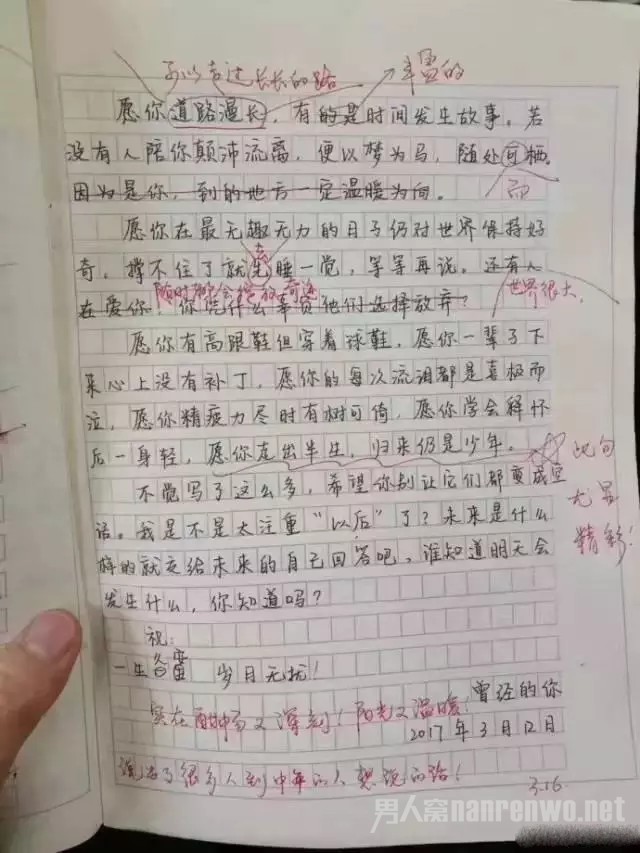 可以走过长长的路 丰富的
愿你道路漫长，有的是时间发生故事。若
没有人陪你颠沛流离，便以梦为马，随处可栖。
因为是你，到的地方一定温暖为向。 而
愿你在最无趣无力的日子仍对世界保持好
奇，撑不住了就先睡一觉，等等再说。还有人
随时都会 奇迹 世界很大，
在爱你！你凭什么辜负他们选择放弃？
愿你有高跟鞋但穿着球鞋，愿你一辈子下
来心上没有补丁，愿你的每次流泪都是喜极而
泣，愿你精疲力尽时有树可倚，愿你学会释怀
后一身轻，愿你走出半生，归来仍是少年。 此句
不觉写了这么多，希望你别让它们都变成空 尤显
话。我是不是太注重“以后”了？未来是什么 精彩！
样的就交给未来的自己回答吧，谁知道明天会
发生什么，你知道吗？
祝：
一生 岁月无忧！
曾经的你
实在酣畅又深刻！阳光又温暖！
2017年3月12日
说出了很多人到中年的人想说的话！
3.16
男人窝nanrenwo.net